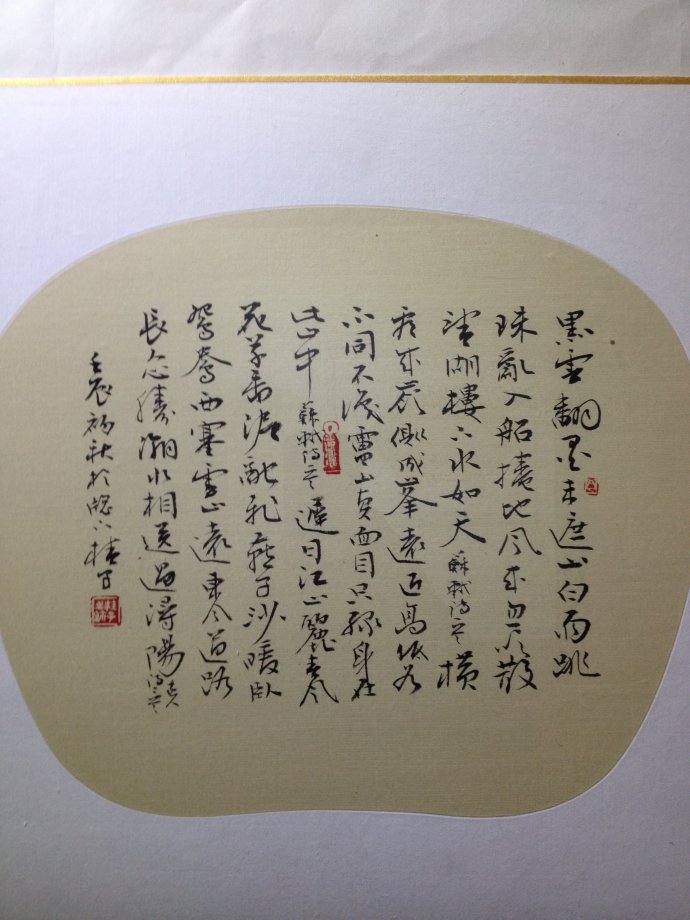 黑雲翻墨未遮山白雨跳
珠亂入船捲地風來忽吹散
望湖樓下水如天蘇軾詩橫
看成嶺側成峯遠近高低各
不同不識廬山真面目只緣身在
此山中蘇軾詩遲日江山麗春風
花草香泥融飛燕子沙暖臥
鴛鴦西塞雲山遠東風道路
長人心勝潮水相送過潯陽
壬辰初秋於